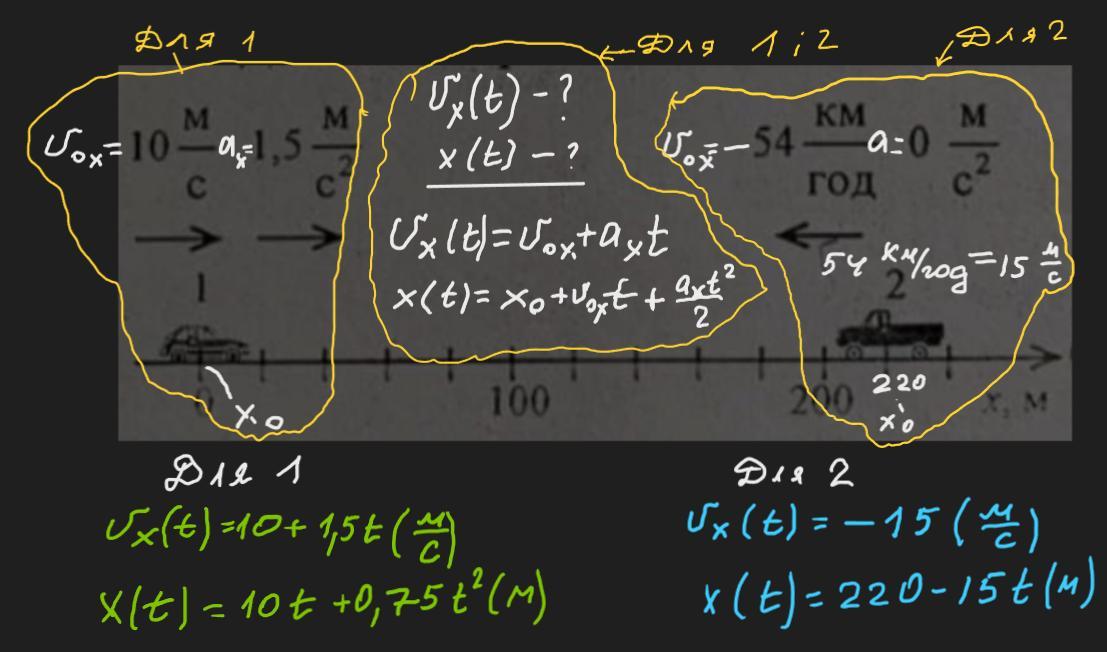 Для 1
Для 1 і 2
Для 2
υ₀ₓ = 10 м/с aₓ = 1,5 м/с²
1
0
x₀
υₓ(t) – ?
x(t) – ?
υₓ(t) = υ₀ₓ + aₓt
x(t) = x₀ + υ₀ₓt + aₓt²/2
100
υ₀ₓ = – 54 км/год a = 0 м/с²
54 км/год = 15 м/с
2
200
220
x₀
x, м
Для 1
υₓ(t) = 10 + 1,5t (м/с)
x(t) = 10t + 0,75t² (м)
Для 2
υₓ(t) = – 15 (м/с)
x(t) = 220 – 15t (м)